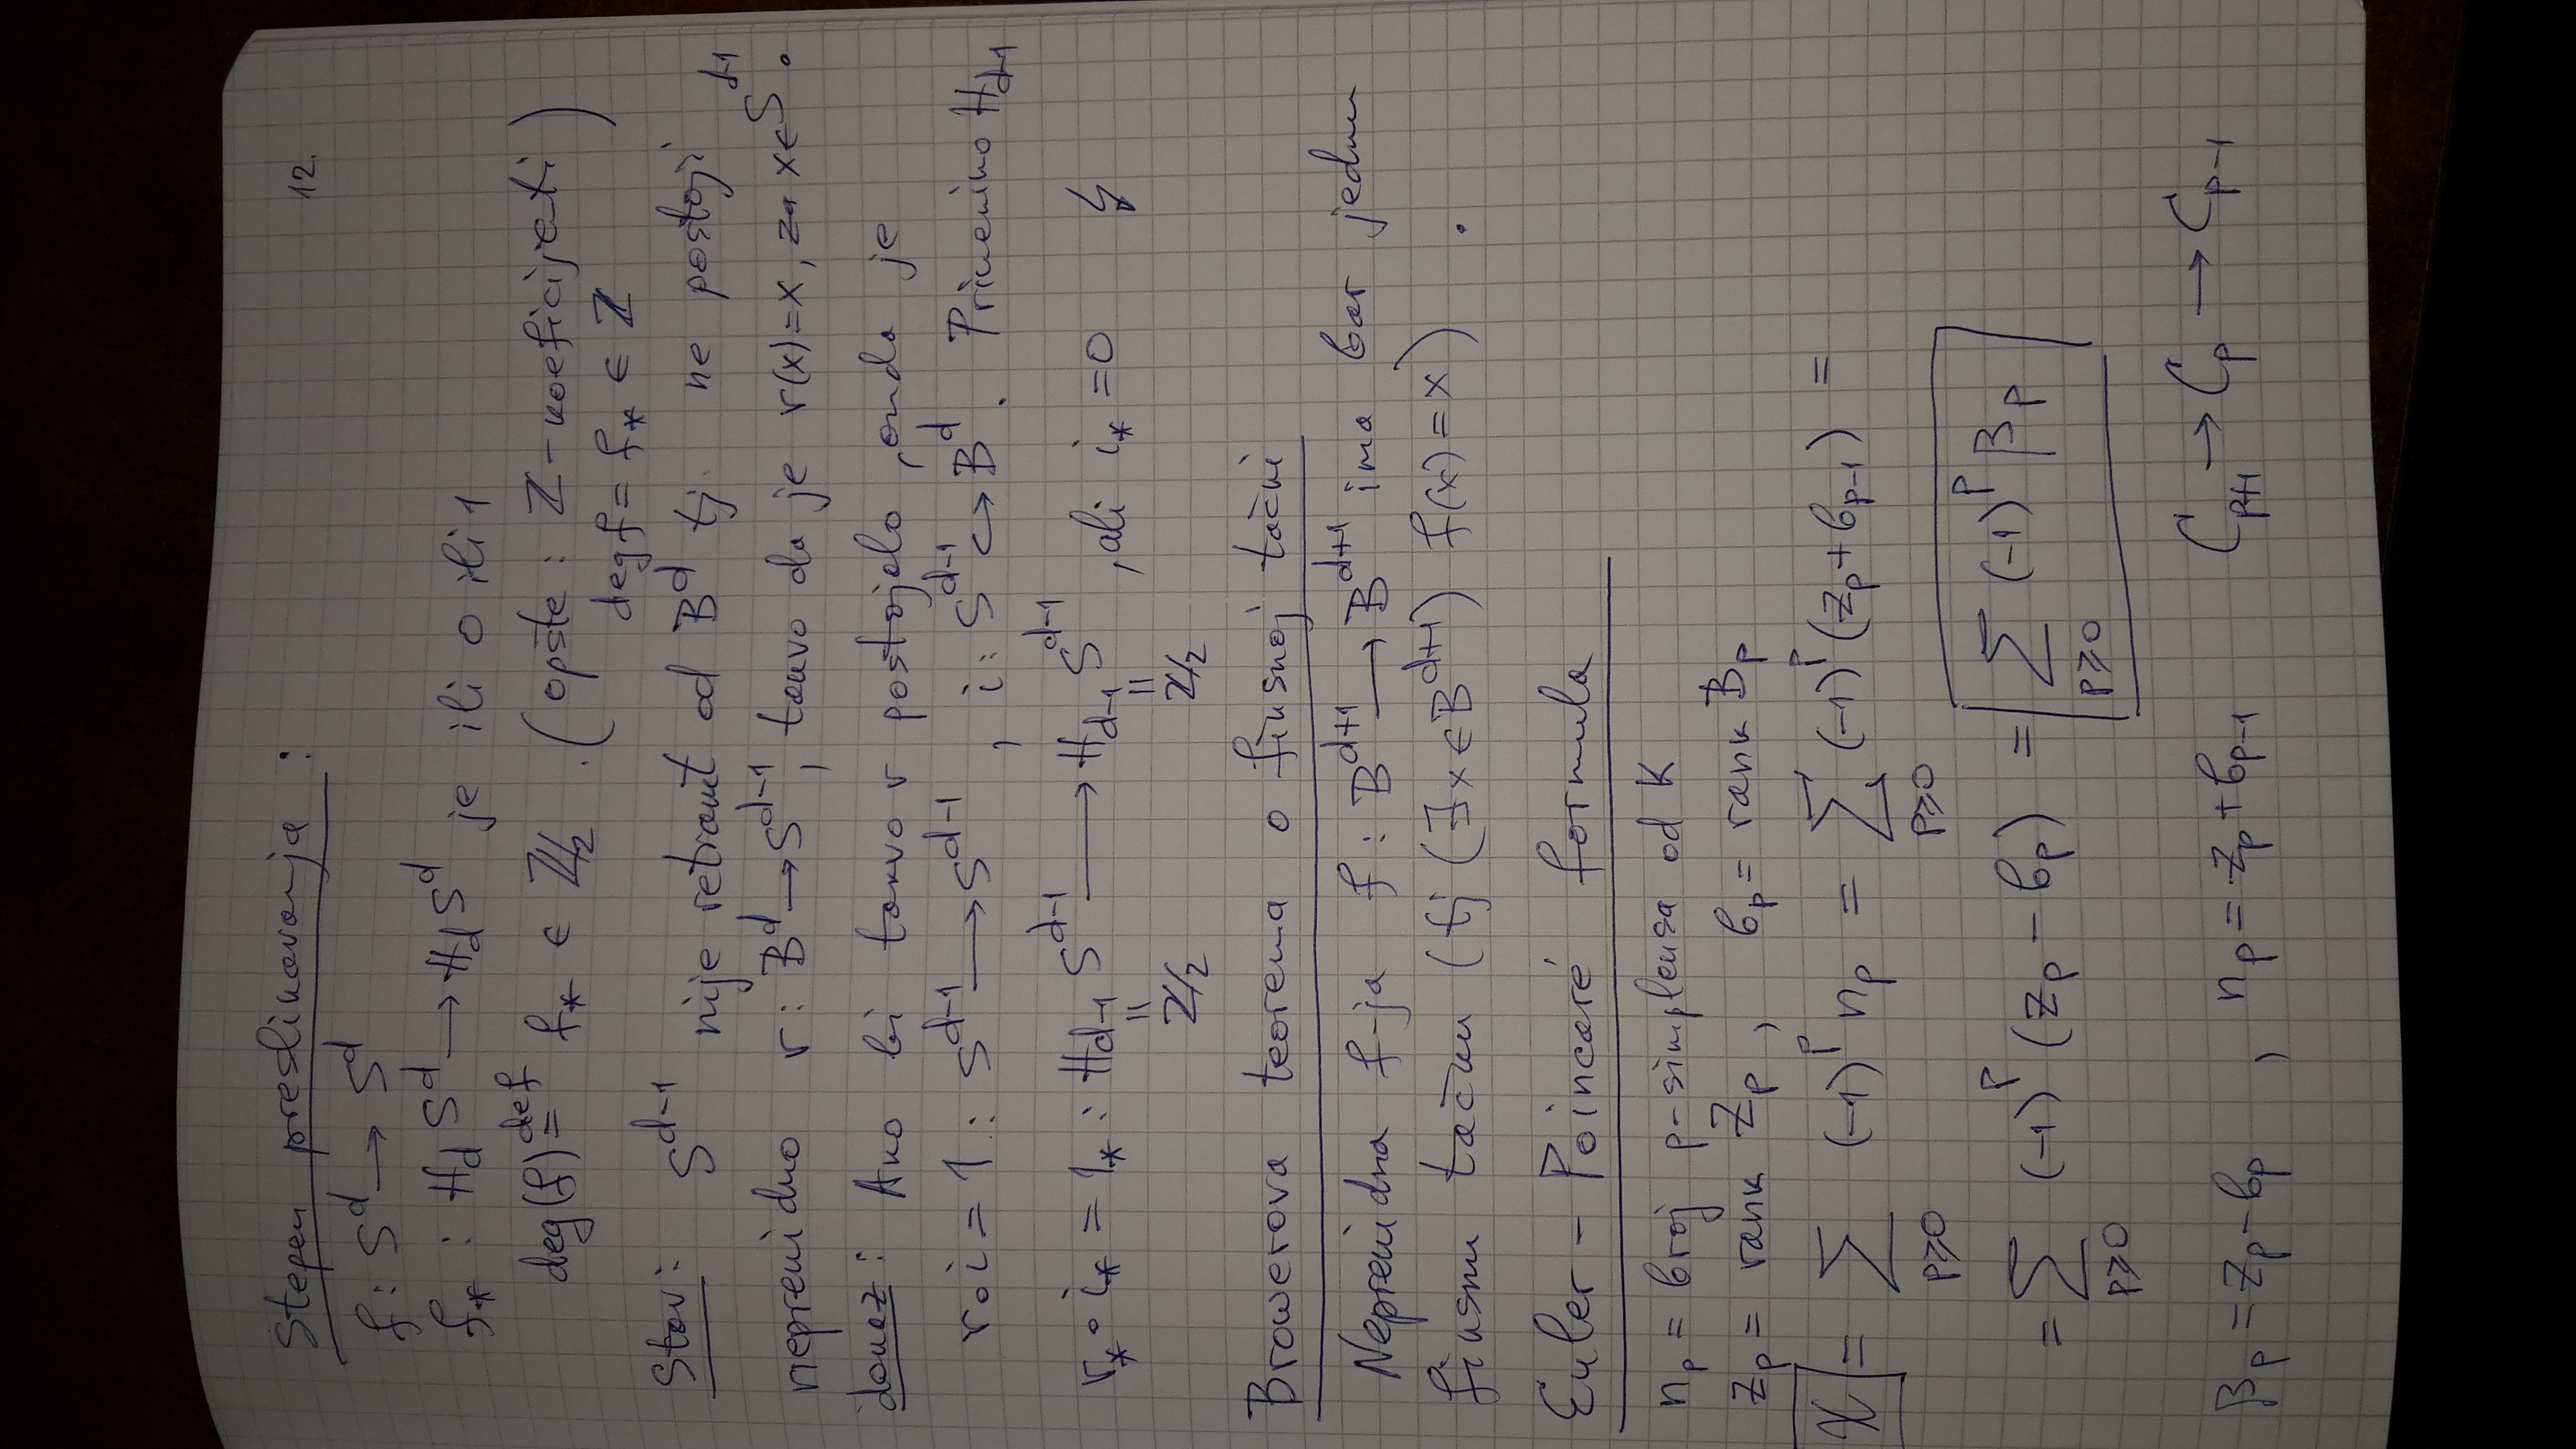 12.
Stepen preslikavanja:
f: S^d → S^d
f_* : H_d S^d → H_d S^d je ili 0 ili 1
deg(f) =^def f_* ∈ ℤ/2 . (opšte: ℤ-koeficijenti)
deg f = f_* ∈ ℤ
Stav: S^{d-1} nije retrakt od B^d tj. ne postoji
neprekidno r: B^d → S^{d-1}, takvo da je r(x)=x, za x∈S^{d-1}.
dokaz: Ako bi takvo r postojalo, onda je
r∘i = 1 : S^{d-1} → S^{d-1} , i: S^{d-1} ↪ B^d . Primenimo H_{d-1}
r_*∘i_* = 1_* : H_{d-1} S^{d-1} → H_{d-1} S^{d-1} , ali i_* = 0 ↯
|| ||
ℤ/2 ℤ/2
Browerova teorema o fiksnoj tački
Neprekidna f-ja f: B^{d+1} → B^{d+1} ima bar jednu
fiksnu tačku (tj (∃x∈B^{d+1}) f(x)=x) .
Euler - Poincaré formula
n_p = broj p-simpleksa od K
z_p = rank Z_p , b_p = rank B_p
χ = Σ_{p≥0} (-1)^p n_p = Σ_{p≥0} (-1)^p (z_p + b_{p-1}) =
= Σ_{p≥0} (-1)^p (z_p - b_p) = Σ_{p≥0} (-1)^p β_p
β_p = z_p - b_p , n_p = z_p + b_{p-1} C_{p+1} → C_p → C_{p-1}